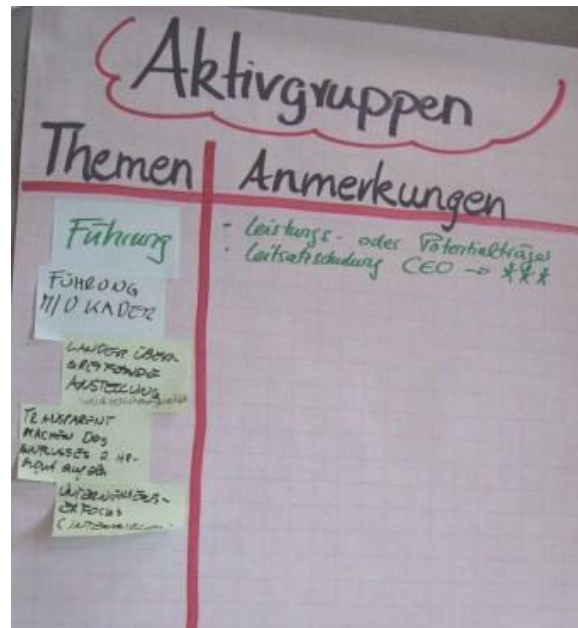 Aktivgruppen
Themen
Anmerkungen
Führung
- Leistungs- oder Potentialträger
- CEO →
FÜHRUNG
M/O KADER
LÄNDER ÜBER-
GREIFENDE
ANSTELLUNG
TRANSPARENT
MACHEN DES
EINFLUSSES
auf den
UNTERNEHMENS-